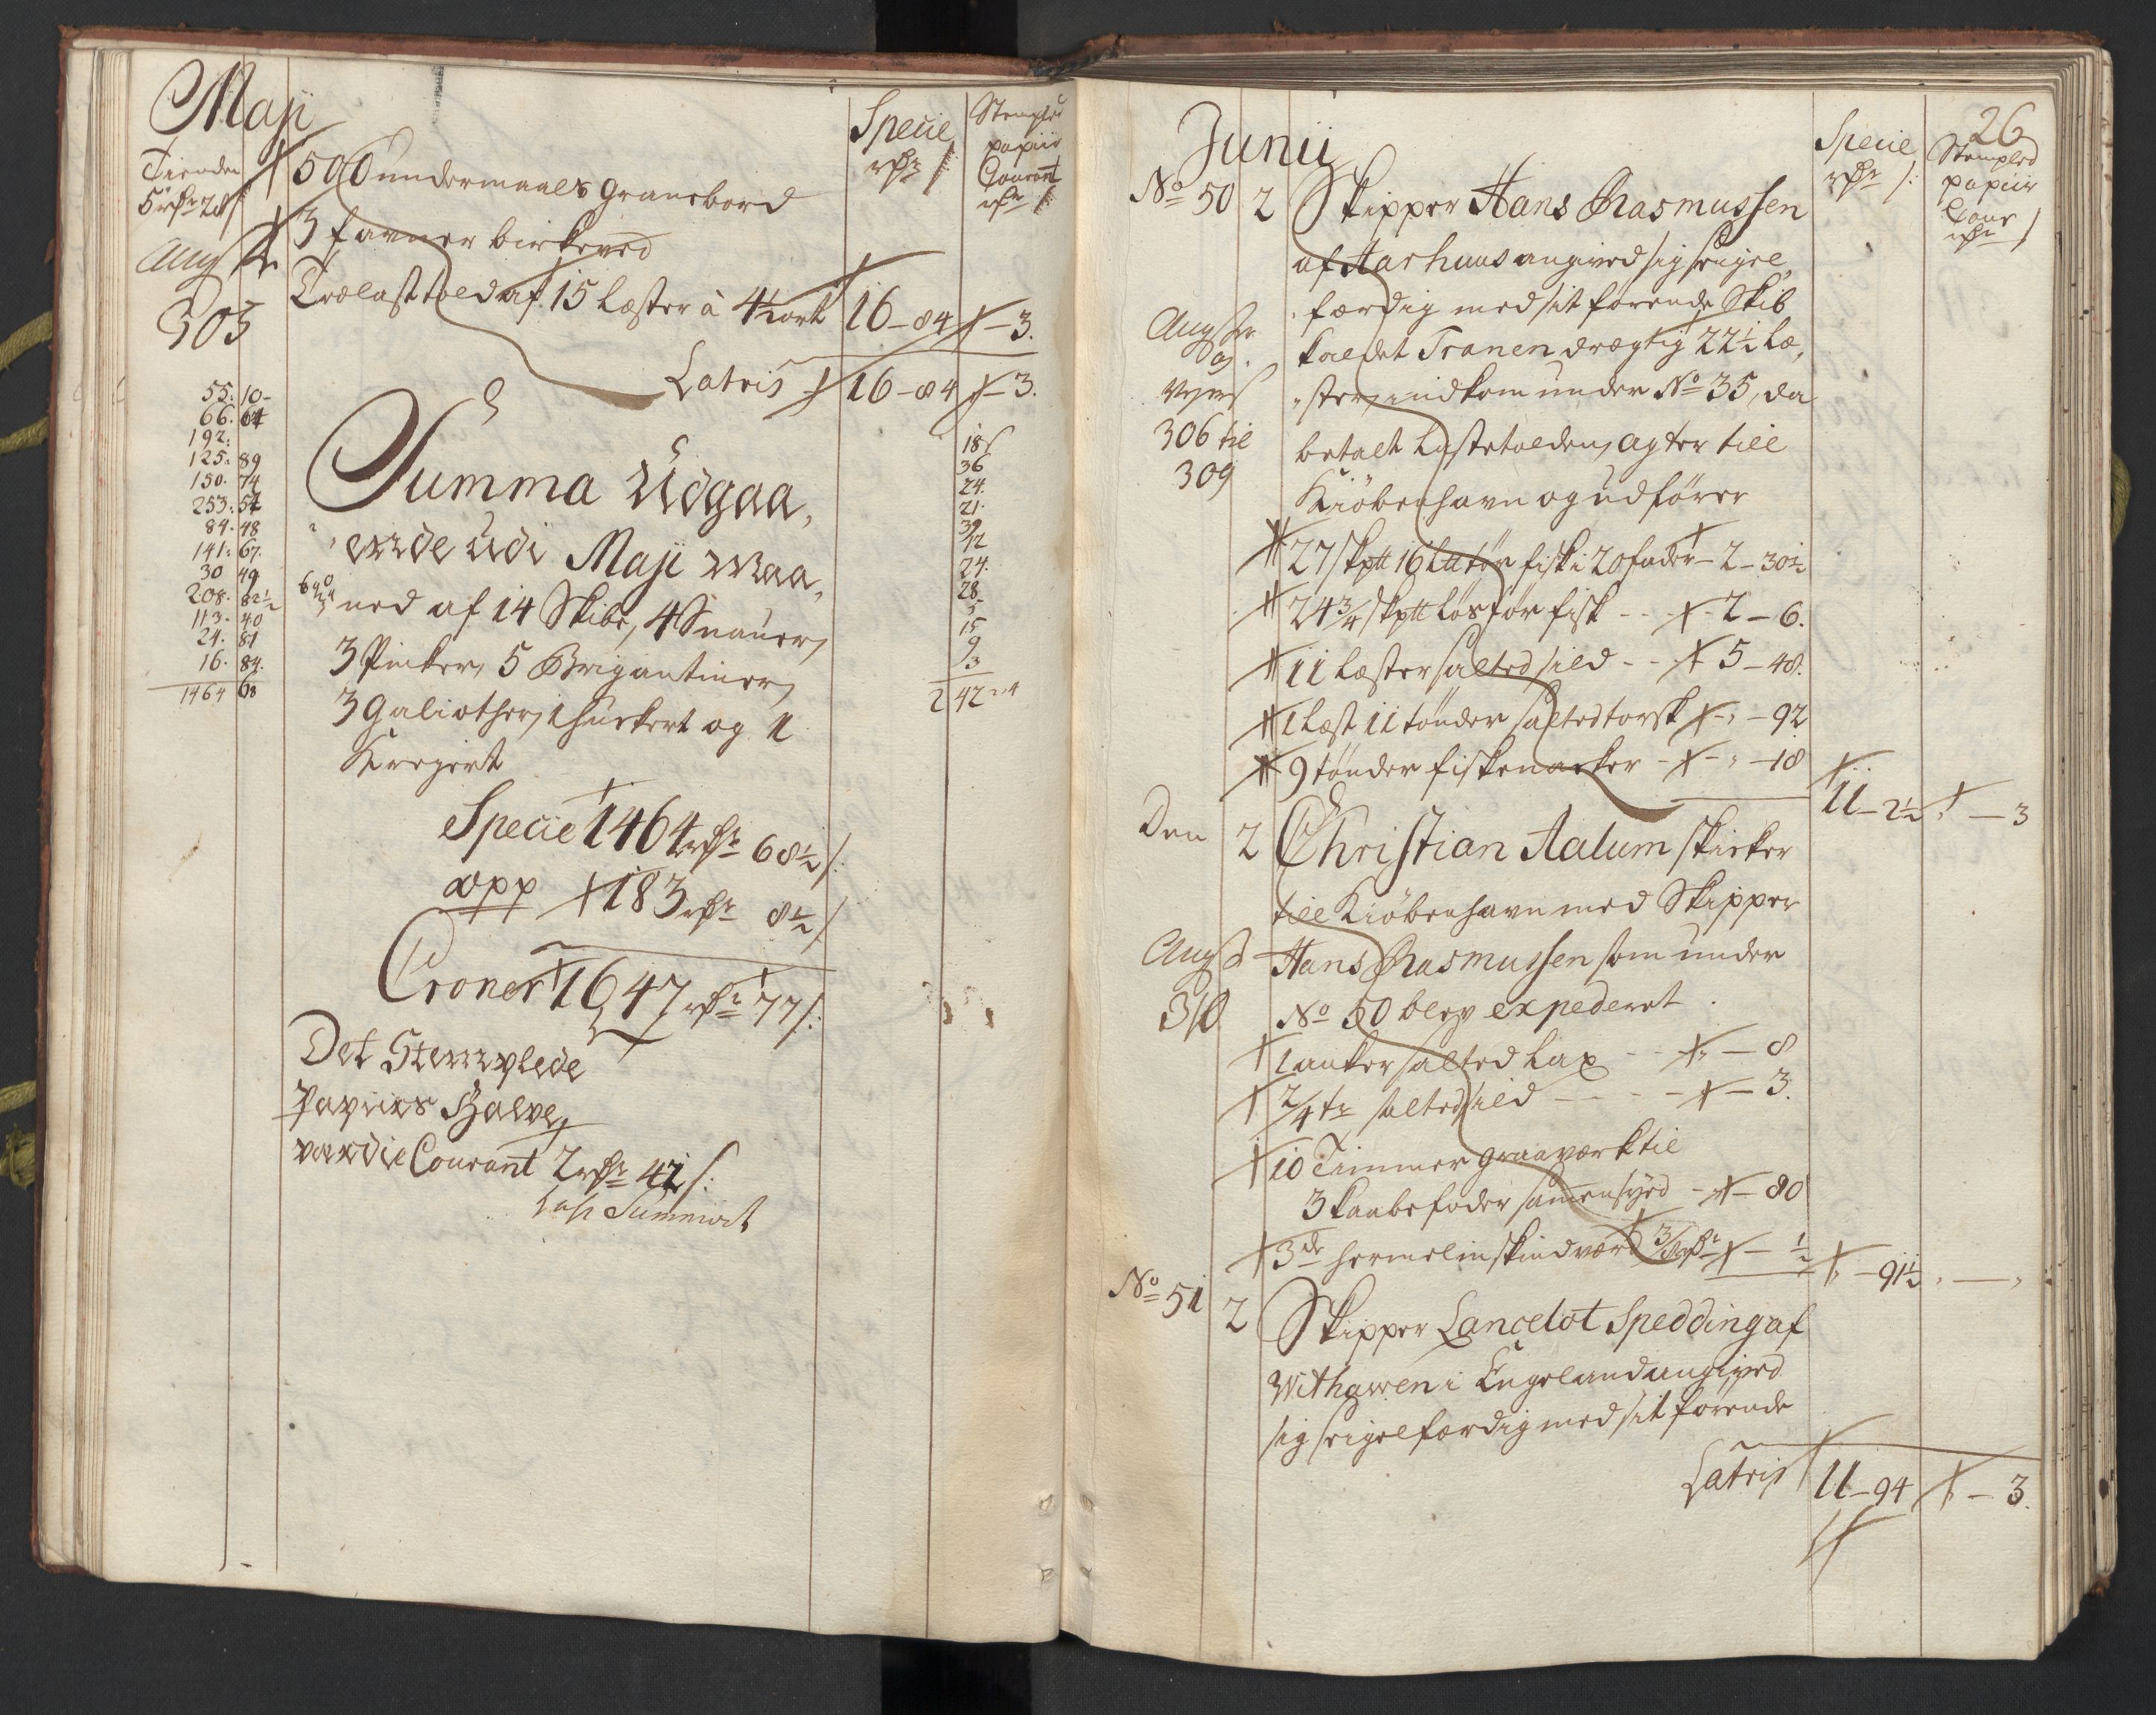 Maji
Specie
rdr ſ:
Stempled
papiir
Courant
rdr ſ
Tienden
5 rdr 20 ſ
500 undermaals Granebord
3 favner birkeved
Ang
303
Trælasttold af 15 Læster à 4½ ort 16 - 84 - 3.
Latris 16 - 84 - 3.
55: 10
66. 64
192:
125: 89
150. 74
253: 54
84. 48
141: 67.
30 49
208. 82½
113. 40
24. 81
16. 84.
1464 68
18 ſ
36
24.
21.
39
12
24.
28.
5
15
9
3
2 42
Summa Udgaa,
ende Udi Maji Maa,
ned af 14 Skibe, 4 Snauer,
3 Pinker, 5 Brigantiner,
3 Galiother, 1 hukert og 1
Kreyert
Specie 1464 rdr 68½ ſ:
opp 183 rdr 8½ ſ:
Croner 1647 rdr 77 ſ:
Det Stemplede
Papiirs Halve
værdie Courant 2 rdr 42 ſ:
Summert
26
Junii
Specie
rdr ſ:
Stempled
papiir
Cour
rdr ſ
No 50 2 Skipper Hans Rasmussen
af Aarhuus angived sig seigel,
færdig med sit førende Skib
kaldet Tranen drægtig 22½ Læ,
ster, indkom under No 35, da
betalt Lastetolden, agter till
Kiöbenhavn og udfører
306 til
309
27 skptt 16 Ltt tør fisk i 20 fader - 2 - 30½
24¾ skptt løs tør fisk - - 2 - 6.
11 Læster salted sild - - 5 - 48.
1 Læst 11 tønder salted torsk - - 92
9 tønder fiskemarker - - - 18
11 - 2½ - 3
Den 2 Christian Aalum skicker
till Kiöbenhavn med Skipper
Hans Rasmussen som under
No 50 blev expederet.
Ang
310
1 anker salted Lax - - - 8
2/4 tr salted sild - - - - 3.
10 Timmer graaværk til
3 kaabefoder samensyed - - 80
3 de hermelinskind værd - ½
- 91½
No 51 2 Skipper Lancelot Spedding af
Withawen i Engeland angived
sig seigelfærdig med sit førende
Latris 11 - 94 - 3.